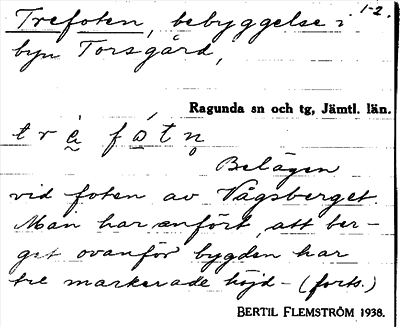 Trefoten, bebyggelse i 1-2.
byn Torsgård,
Ragunda sn och tg, Jämtl. län.
Belägen
vid foten av Vågsberget
Man har anfört, att ber-
get ovanför bygden har
tre markerade höjd- (forts.)
BERTIL FLEMSTRÖM 1938.